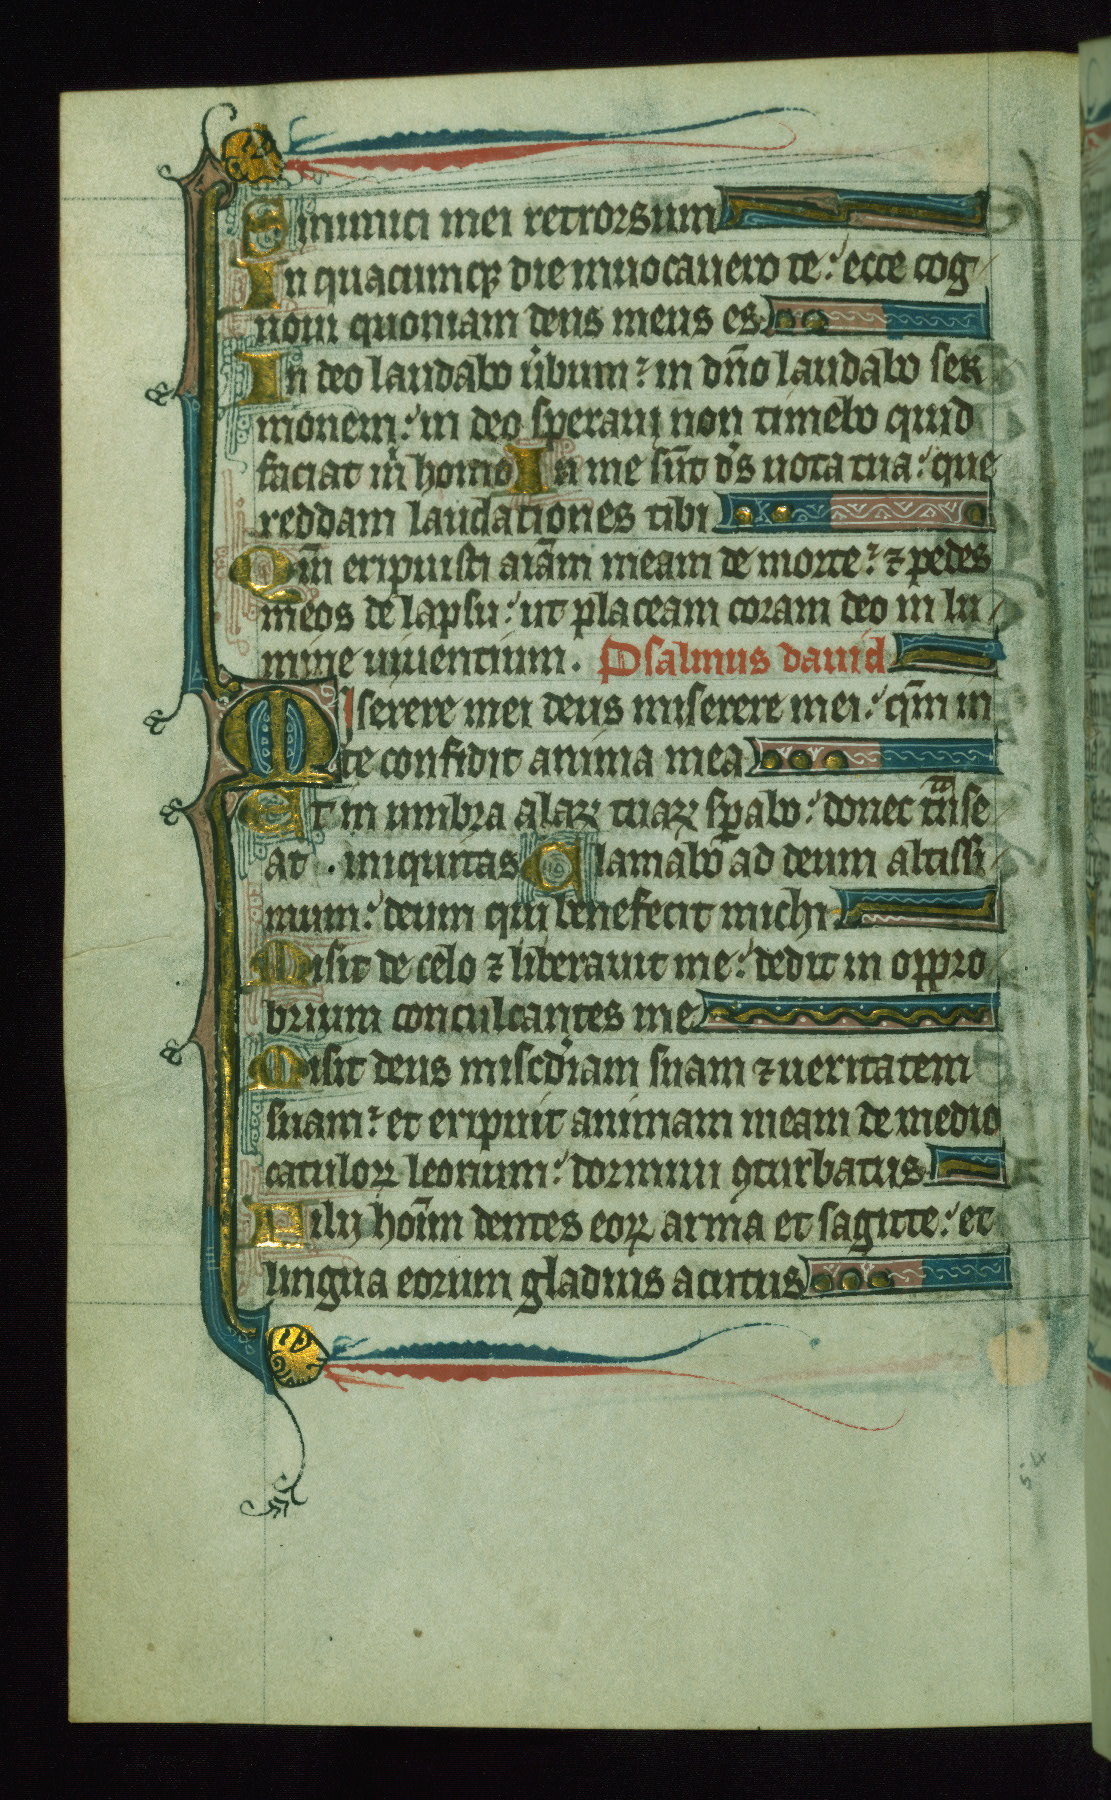 S inimici mei retrorsum
In quacumqꝫ die inuocauero te: ecce cog
noui quoniam deus meus es
In deo laudabo ũbum: in dño laudabo ser
monem: in deo speraui non timebo quid
faciat m̃ homo In me sũt dˀs uota tua: que
reddam laudationes tibi
Qm̃ eripuisti aiãm meam de morte: ⁊ pedes
meos de lapsu: ut placeam coram deo in lu
mine uiuentium. Psalmus dauid
Miserere mei deus miserere mei: qm̃ in
te confidit anima mea
Et in umbra alaꝝ tuaꝝ sꝑabo: donec tñse
at . iniquitas Clamabo ad deum altissi
mum: deum qui benefecit michi
Misit de celo ⁊ liberauit me: dedit in oppro
brium conculcantes me
Misit deus miscdˀiam suam ⁊ ueritatem
suam: et eripuit animam meam de medio
catuloꝝ leonum: dormiui ꝯturbatus
Filij hoĩm dentes eoꝝ arma et sagitte: et
lingua eorum gladius acutus
54